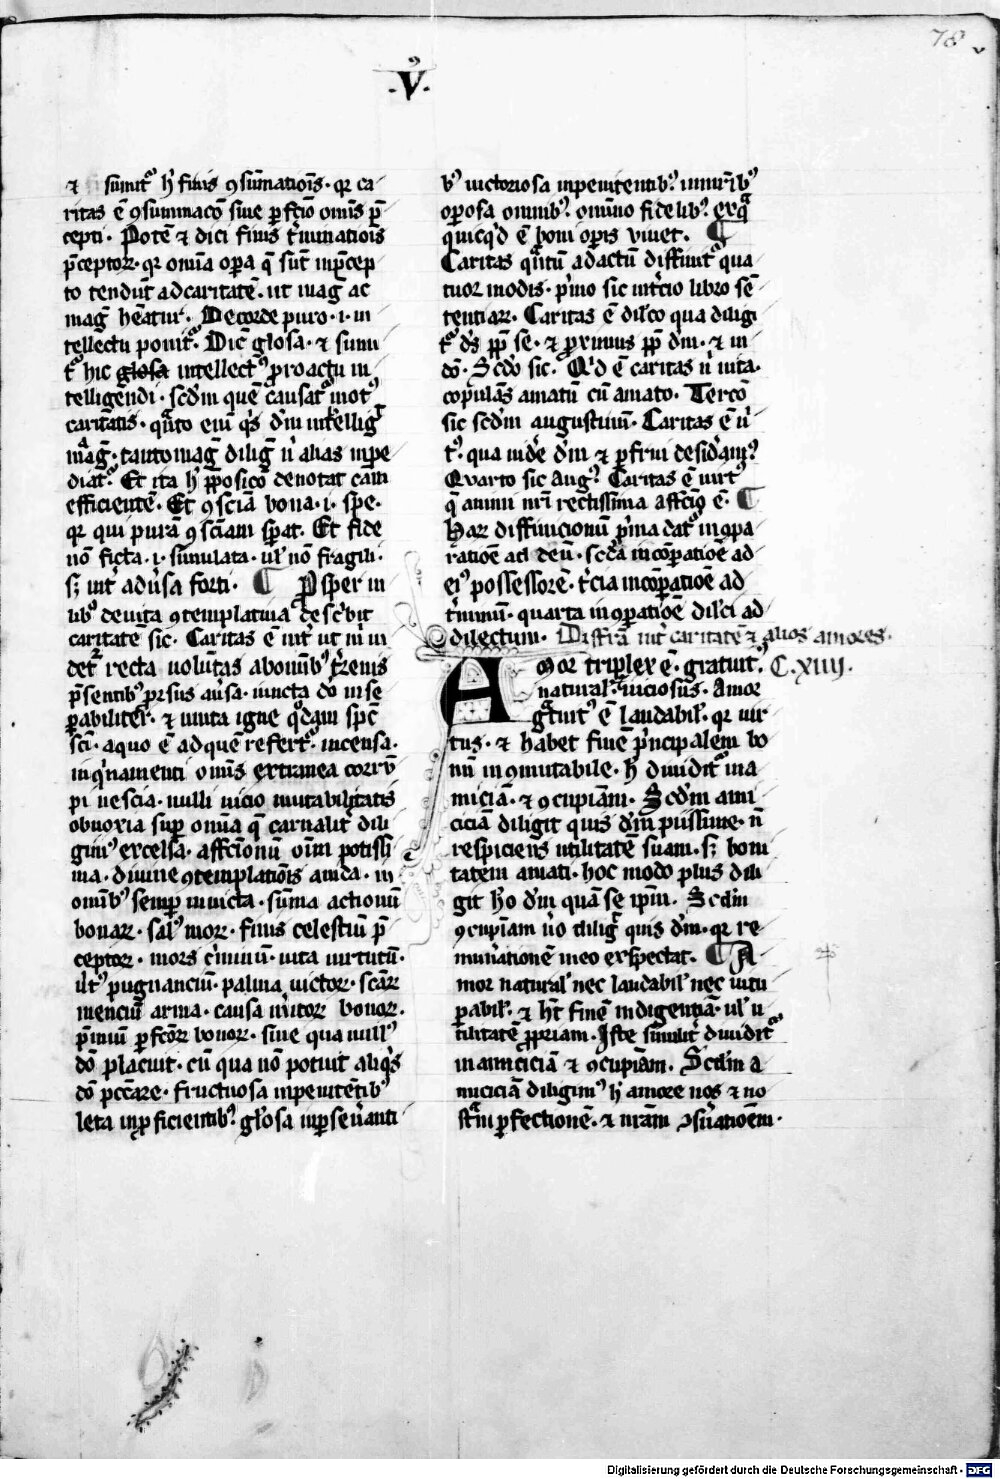 78
·V·
⁊ sumitᷣ h' finis ꝯsūmatiōis · qr ca
ritas ē ꝯsummacō siue ꝑfcīo omīs p̄
cepti · Potē ⁊ dici finis t'minatiōis
p̄ceptor̄ · qr omīa oꝑa q̄ sūt in p̄cep
to tendūt ad caritatē · ut maḡ ac
maḡ hēatur · De corde puro · i · in
tellectu ponitᷣ · Dic̄ glosa · ⁊ sumi
tᷣ hic glosa intellectꝰ pro actu in
telligēdi · scd'm quē causatᷣ motꝰ
caritatis · qᷓnto enī q's d'm intelliḡ
maḡ · tanto maḡ diliḡ n' alias impe
diatᷣ · Et ita h' p̄posicō denotat cām
efficientē · Et ꝯsciā bona · i · spe ·
qr qui purā ꝯsciam sꝑat · Et fide
nō ficta · i · simulata · ul' nō fragili ·
sꝫ int' adu'sa forti · ¶ Psper in
libꝰ de uita ꝯtemplatiua desc'bit
caritatē sic · Caritas ē ut m' in
detᷣ recta uolūtas ab omībꝰ t'renis
p̄sentibꝰ prsus au'sa · iuncta dō inse
ꝑabiliter · ⁊ unita igne q°dam spc̄
sc̄i · a quo ē ad quē refertᷣ · incensa ·
inq'namenti omīs extranea corrū
pi nescia · nulli uicio mutabilitatis
obnoxia suꝑ omīa q̄ carnalit' dili
ginꝰ excelsa · affcīonū oīm potissi
ma · diuine ꝯtemplatiōis auida · in
omībꝰ semꝑ inuicta · sūma actionū
bonar̄ · salꝰ mor̄ · finis celestiū p̄
ceptor̄ · mors c'minū · uita uirtutū ·
uirtꝰ pugnanciū · palma uictor̄ · scār̄
menciū arma · causa m'itor̄ bonor̄ ·
p̄miū ꝑfcōr̄ bonor̄ · sine qua nullꝰ
dō placuit · cū qua nō potuit aliq's
dō pccāre · fructuosa in penitētibꝰ
leta in ꝓficientibꝰ · gl'osa in ꝑseu'anti
bꝰ uictoriosa in penitentibꝰ in martiribꝰ
oꝑosa omnibꝰ · omnino fidelibꝰ · ex qᷓ
quicq'd ē boni oꝑis uiuet · ¶
Caritas qᷓntū ad actū diffinitᷣ qua
tuor modis · p'mo sic in t'cio libro sē
tentiar̄ · Caritas ē dil'co qua diligi
tᷣ d's ꝓp̄ se · ⁊ proximus ꝓp̄ dm · ⁊ in
dō · Scd'o sic · Q'd ē caritas n' uita ·
copulās amatū cū amato · Tercō
sic scd'm augustinū · Caritas ē u'
tꝰ · qua uid'e d'm ⁊ ꝑfrui desid'amꝰ
Quarto sic Augꝰ · Caritas ē uirtꝰ
q̄ animi nr̄i rectissima affcīo ē · ¶
Har̄ diffinicionū p'ma datᷣ in ꝯpa
ratiōe ad deū · sc'da in cōꝑatiōe ad
eiꝰ possessorē · t'cia in cōꝑatiōe ad
t'minū · quarta in ꝯꝑatiōe dil'ci ad
dilectum · Diffr̄a int' caritatē ⁊ alios amores ·
Amor triplex ē · gratuitꝰ · C · xiiij ·
naturalꝭ · uiciosus · Amor
gᷓtuitꝰ ē laudabil' · qr uir
tus · ⁊ habet finē p'ncipalem bo
nū incōmutabile · h' diuiditᷣ in a
miciā · ⁊ ꝯcupiām · Scd'm ami
ciciā diligit quis d'm piissime · n̄
respiciens utilitatē suam · sꝫ boni
tatem amati · hoc modo plus dili
git h'o d'm quā se ipm̄ · Scd'm
ꝯcupiam u'o diliḡ quis d'm · qr re
mun'ationē in eo exspectat · ¶ A
mor natural' nec laudabil' nec uitu
ꝑabil' · ⁊ h't finē indigentiā · ul' u
tilitatē ꝓpriam · Iste simil't diuiditᷣ
in amiciciā ⁊ ꝯcupiām · Scd'm a
miciciā diliginꝰ h' amore nos ⁊ no
stᷓm ꝑfectionē · ⁊ nr̄am ꝯsu'atiōem ·
Digitalisierung gefördert durch die Deutsche Forschungsgemeinschaft - DFG